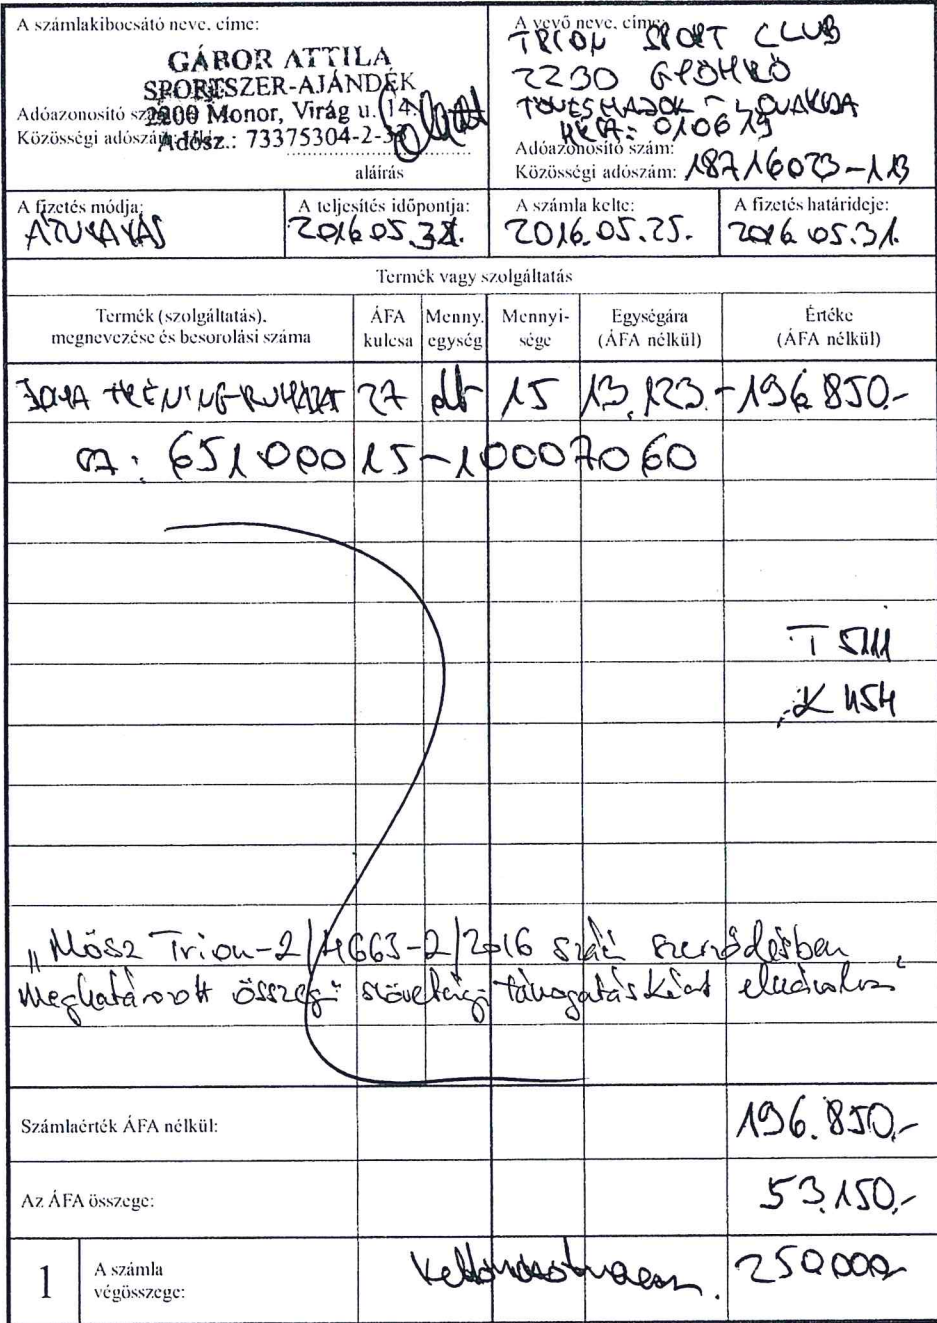 A számlakibocsátó neve, címe:
GÁBOR ATTILA
SPORTSZER-AJÁNDÉK
2200 Monor, Virág u. 14.
Adóazonosító
Közösségi adószám:
Adósz.: 73375304-2-33
aláírás
A vevő neve, címe:
TRION SPORT CLUB
2230 GYÖMRŐ
010619
Adóazonosító szám:
Közösségi adószám: 18716023-1-13
A fizetés módja:
ÁTUTALÁS
A teljesítés időpontja:
2016.05.31.
A számla kelte:
2016.05.25.
A fizetés határideje:
2016.05.31.
Termék vagy szolgáltatás
Termék (szolgáltatás), megnevezése és besorolási száma
ÁFA kulcsa
Menny. egység
Mennyi-
sége
Egységára
(ÁFA nélkül)
Értéke
(ÁFA nélkül)
JOMA TRÉNINGRUHÁZAT 27 db 15 13.123.- 196.850.-
65100015-10007060
T 5111
K 454
„Mösz Trion-2/4663-2/2016 számú szerződésben
meghatározott összegű szövetségi támogatásként elszámolva"
Számlaérték ÁFA nélkül: 196.850.-
Az ÁFA összege: 53.150.-
1 A számla
végösszege: 250.000.-